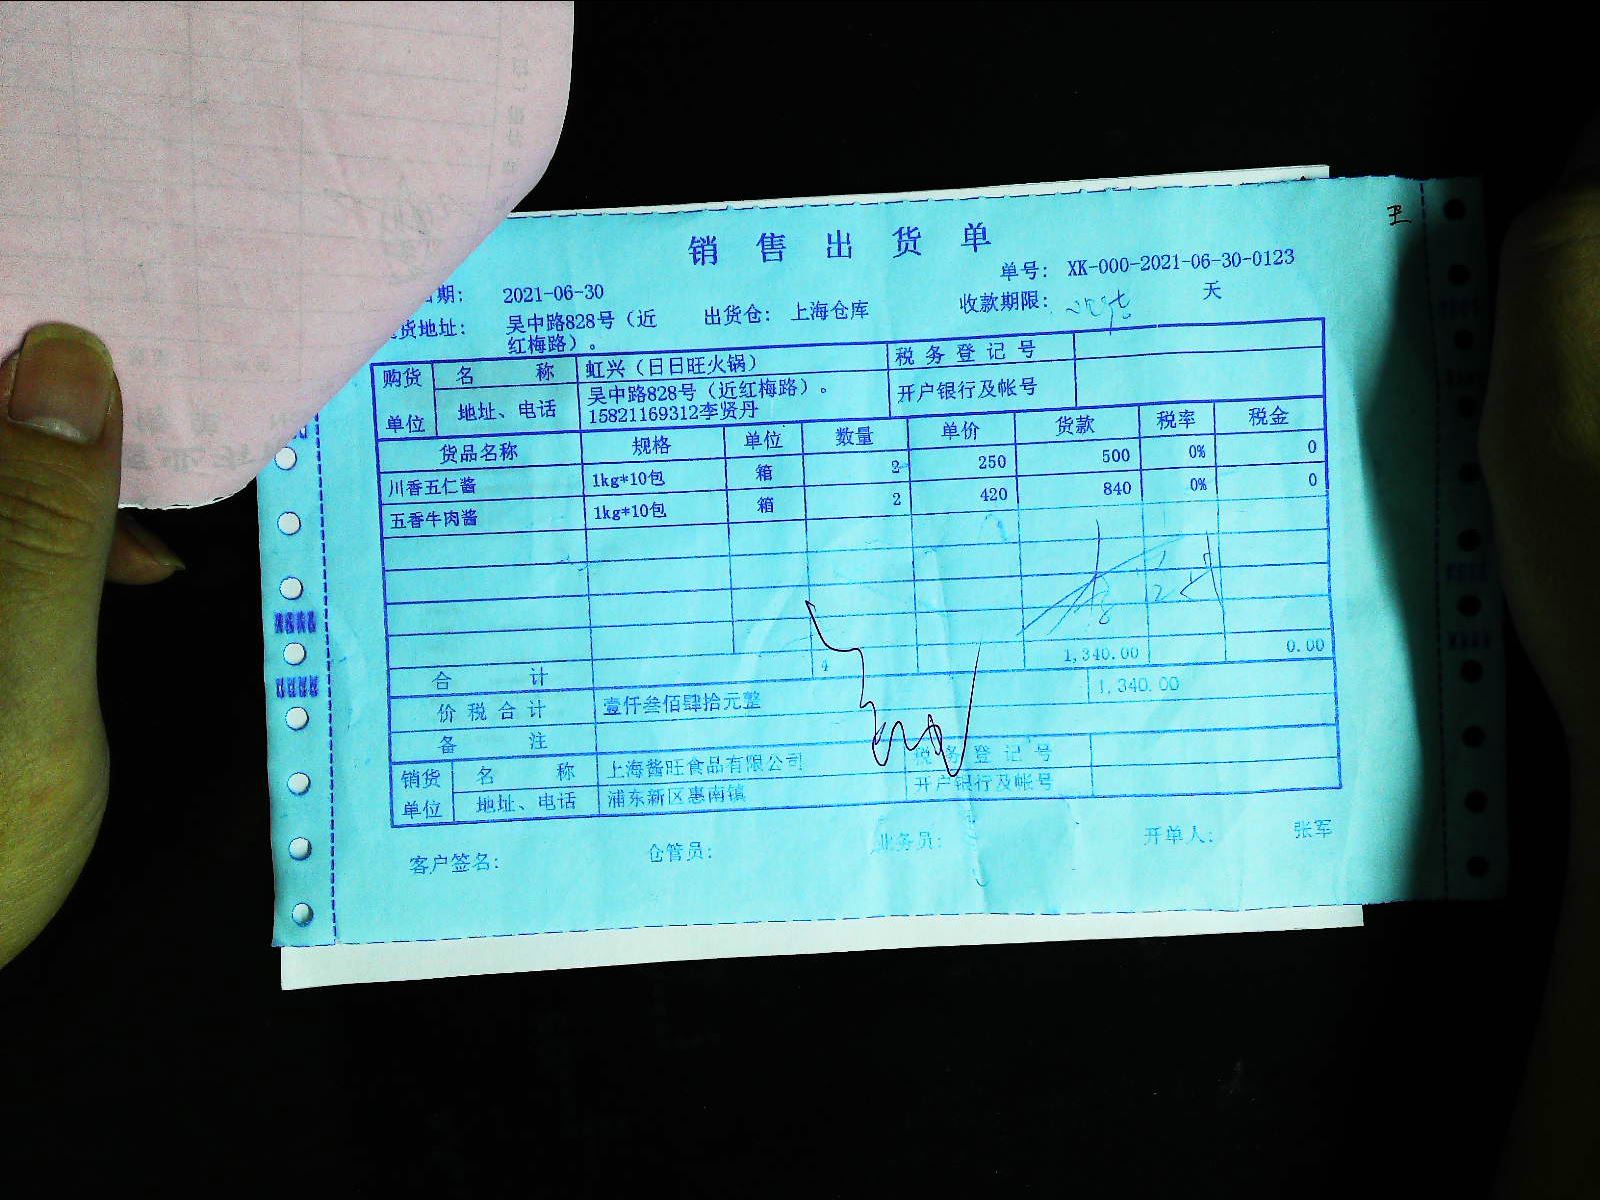 销售出货单
单号: XK-000-2021-06-30-0123
期: 2021-06-30
收款期限: 天
货地址: 吴中路828号（近红梅路）。 出货仓: 上海仓库
购货单位 名称 虹兴（日日旺火锅） 税务登记号
地址、电话 吴中路828号（近红梅路）。 15821169312李贤丹 开户银行及帐号
货品名称 规格 单位 数量 单价 货款 税率 税金
川香五仁酱 1kg*10包 箱 2 250 500 0% 0
五香牛肉酱 1kg*10包 箱 2 420 840 0% 0
合计 4 1,340.00 0.00
价税合计 壹仟叁佰肆拾元整 1,340.00
备注
销货单位 名称 上海酱旺食品有限公司 税务登记号
地址、电话 浦东新区惠南镇 开户银行及帐号
客户签名: 仓管员: 业务员: 开单人: 张军